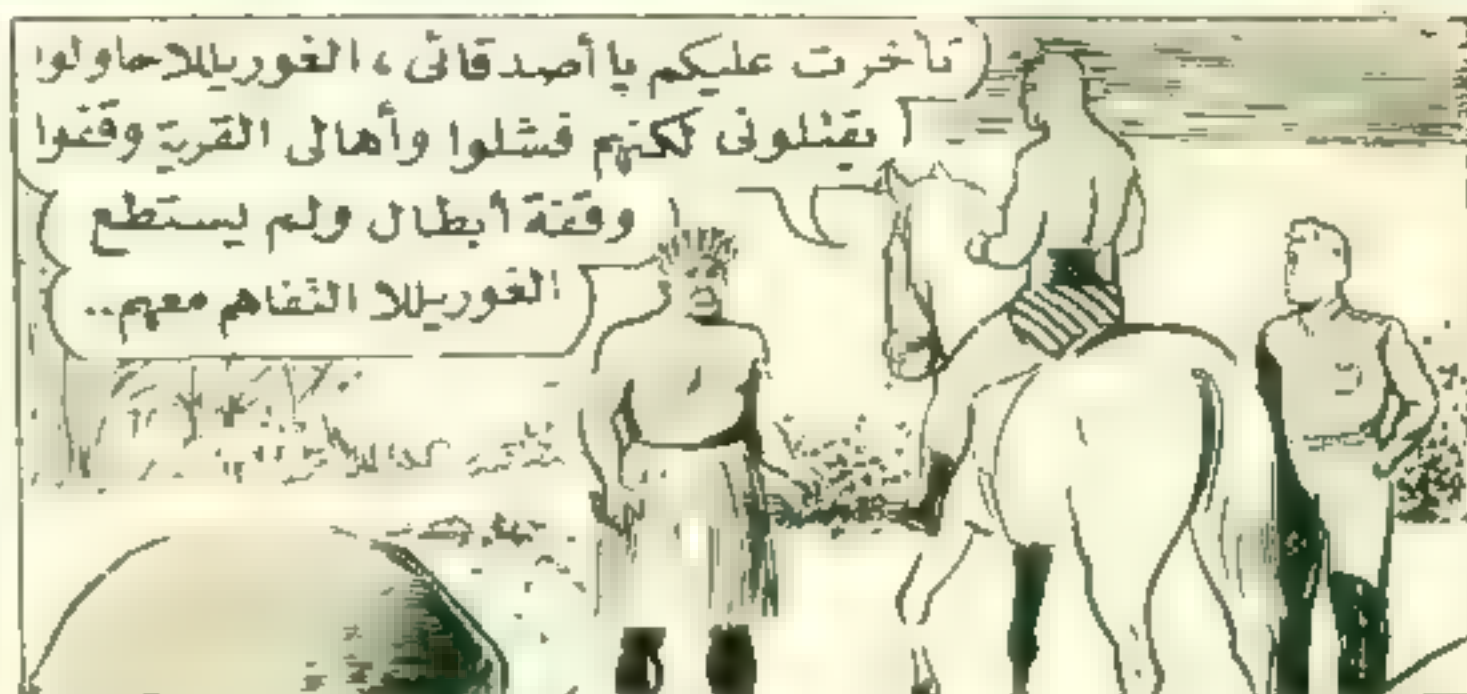 تأخرت عليكم يا أصدقائى ، الغوريللا حاولوا
يقتلونى لكنهم فشلوا وأهالى القرية وقفوا
وقفة أبطال ولم يستطع
الغوريللا التفاهم معهم..